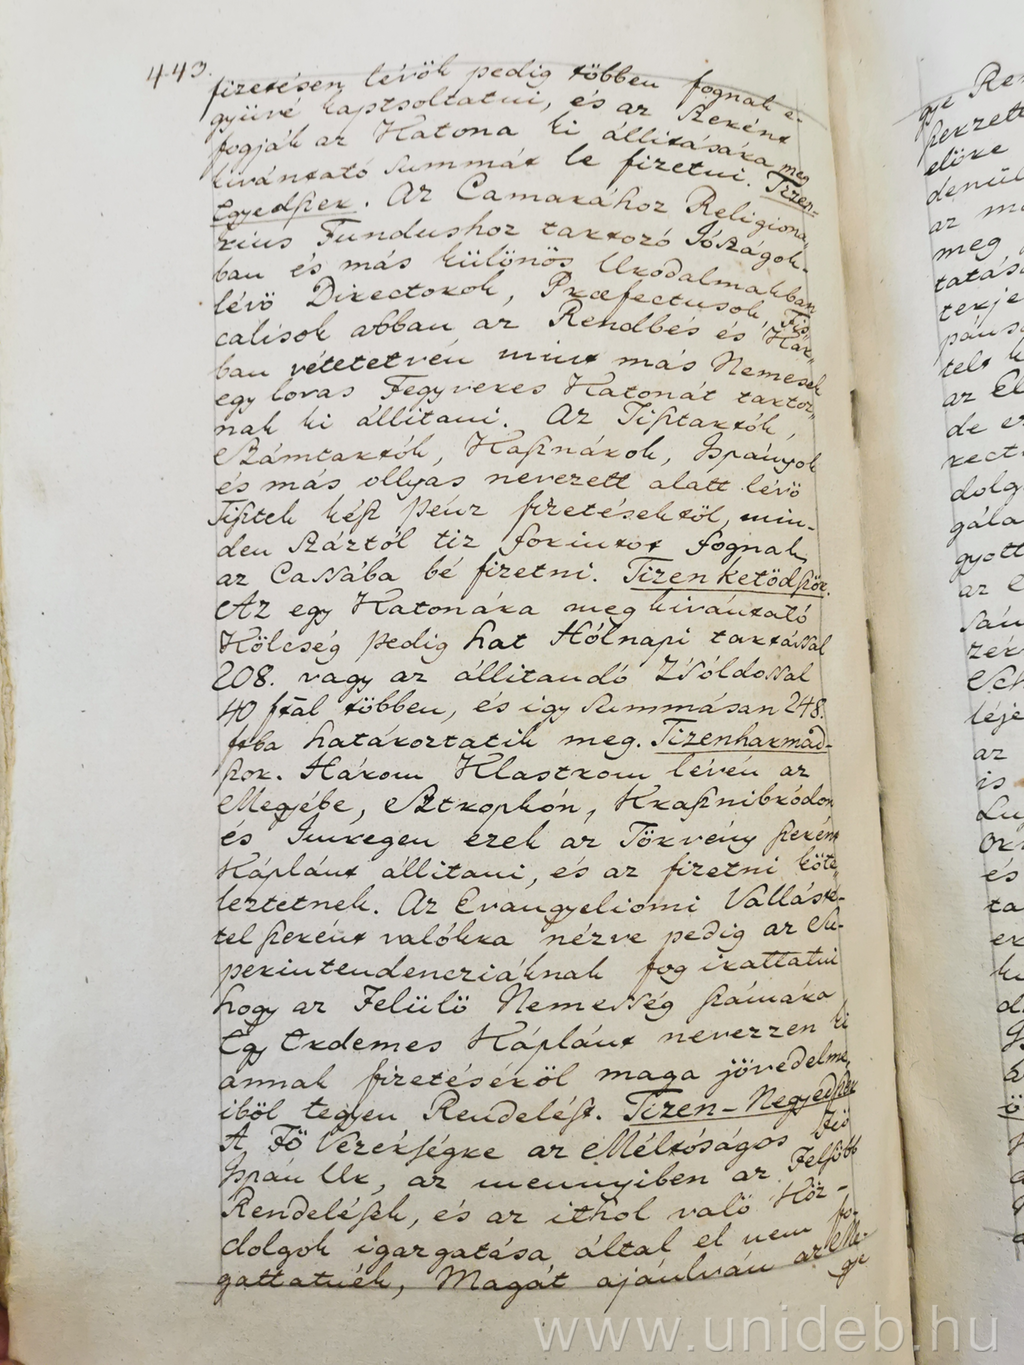 443.
fizetésen lévök pedig többen fognak e-
gyüvé kaptsoltatni, és az szerént
fogják az Katona ki állitására meg
kivántató summát le fizetni. Tizen-
Egyedszer. Az Camarához Religiona-
rius Fundushoz tartozó Jószágok-
ban és más különös Uradalmakban
lévö Directorok, Præfectusok, Fis-
calisok abban az Rendbe és Kar-
ban vétetetvén mint más Nemesek
egy lovas Fegyveres Katonát tartoz-
nak ki állitani. Az Tisztartók,
Számtartók, Kasznárok, Ispányok
és más ollyas nevezett alatt lévö
Tisztek kész pénz fizetésektöl, min-
den száztól tiz forintot fognak
az Cassába bé fizetni. Tizenketödször.
Az egy Katonára meg kivántató
Kölcség pedig hat Hólnapi tartással
208. vagy az állitandó Zsóldossal
40 ftal többen, és igy summásan 248.
ftba határoztatik meg. Tizenharmad-
szor. Három Klastrom lévén az
Megyébe, Sztropkón, Krasznibródon
és Imregen ezek az Törvény szerént
Káplánt állitani, és az fizetni köte-
leztetnek. Az Evangyeliomi Vallásté-
tel szerént valókra nézve pedig az Su-
perintendencziáknak fog irattatni
hogy az Felülö Nemesség számára
Egy Erdemes Káplánt nevezzen ki
annak fizetéséröl maga jövedelme-
iböl tegyen Rendelést. Tizen-Negyedszer
A Fö Vezérségre az Méltóságos Fö
Ispán Ur, az mennyiben az Felsöbb
Rendelések, és az ithol való Köz-
dolgok igazgatása által el nem fo-
gattatnék, Magát ajánlván az Me-
gye
gye
elöre
az
meg
az
de
dolg
gyott
az
az
is
és
www.unideb.hu